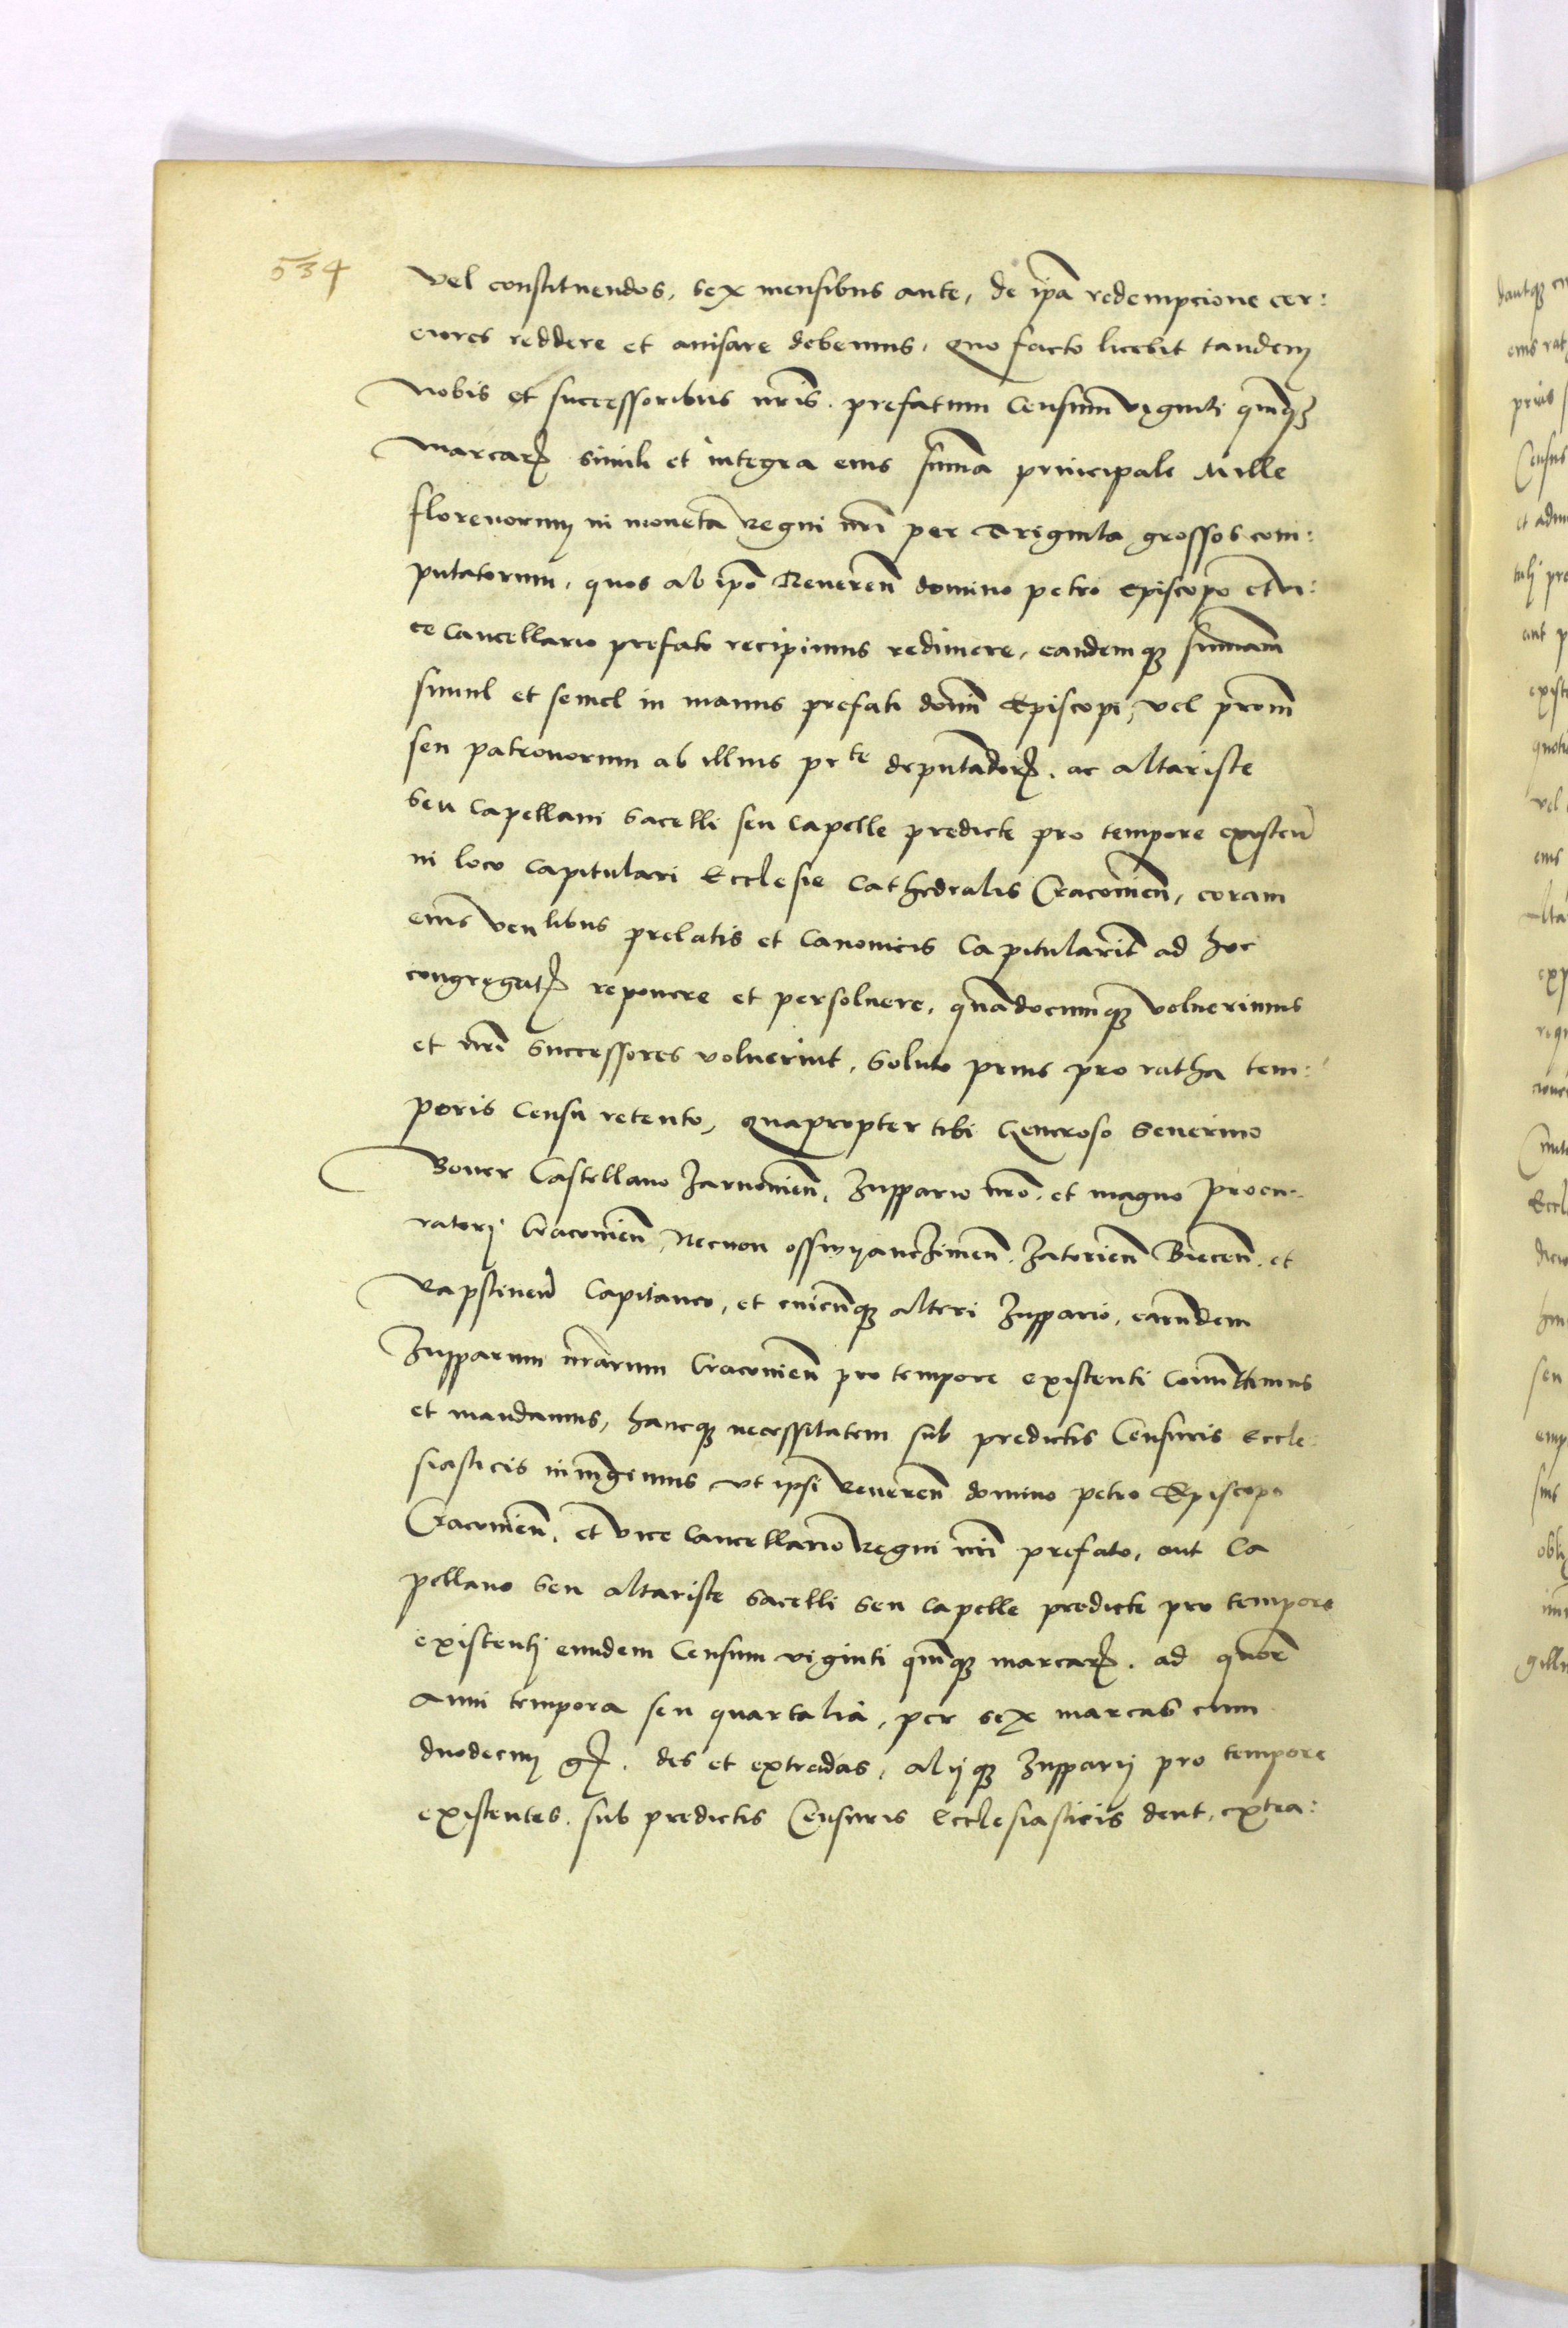 534
vel constituendos, sex mensibus ante, de ip̃a redempcione cer:
ciores reddere et auisare debemus, quo facto licebit tandem
nobis et successoribus nr̃is. prefatum Censum viginti quinq3
marcarꝝ simili et integra eius sum̃a principale Mille
florenorum in moneta Regni nr̃i per Triginta grossos com:
putatorum, quos ab ip̃o Reueren̄ domino petro Episcopo et vi:
ce Cancellario prefato recipimus redimere, eandemq3 summam
simul et semel in manus prefati domĩ Episcopi, vel pronm̃
seu patronorum ab illius pte deputandorꝝ. ac altariste
seu Capellani sacelli seu Capelle predicte pro tempore existeñ
in loco Capitulari Ecclesie Cathedralis Cracouieñ, coram
eius venlibus prelatis et Canonicis Capitularit̃ ad hoc
congregatꝭ reponere et persoluere, quandocumq3 voluerimus
et nr̃i successores voluerint, soluto prius pro ratha tem:
poris Censu retento, quapropter tibi Generoso Seuerino
Boner Castellano Zarnouieñ, Zuppario nr̃o. et magno procu:
ratorj Cracouieñ, Necnon osswijanczimeñ. Zatorieñ Biecen̄. et
Rapstineñ Capitaneo, et cuicunq3 alteri Zuppario, earundem
Zupparum nr̃arum Cracouieñ pro tempore existenti Committimus
et mandamus, hancq3 necessitatem sub predictis Censuris Eccle:
siasticis iniungimus vt ipsi Reueren̄ domino petro Episcopo
Cracouieñ. et vice Cancellario Regni nr̃i prefato, aut Ca
pellano seu altariste sacelli seu Capelle predicte pro tempore
existentj eundem Censum viginti quinq3 marcarꝝ. ad quor̃
anni tempora seu quartalia, per sex marcas cum
duodecim gꝝ. des et extradas, alijq3 Zupparij pro tempore
existentes. sub predictis Censuris Ecclesiasticis dent, extra: